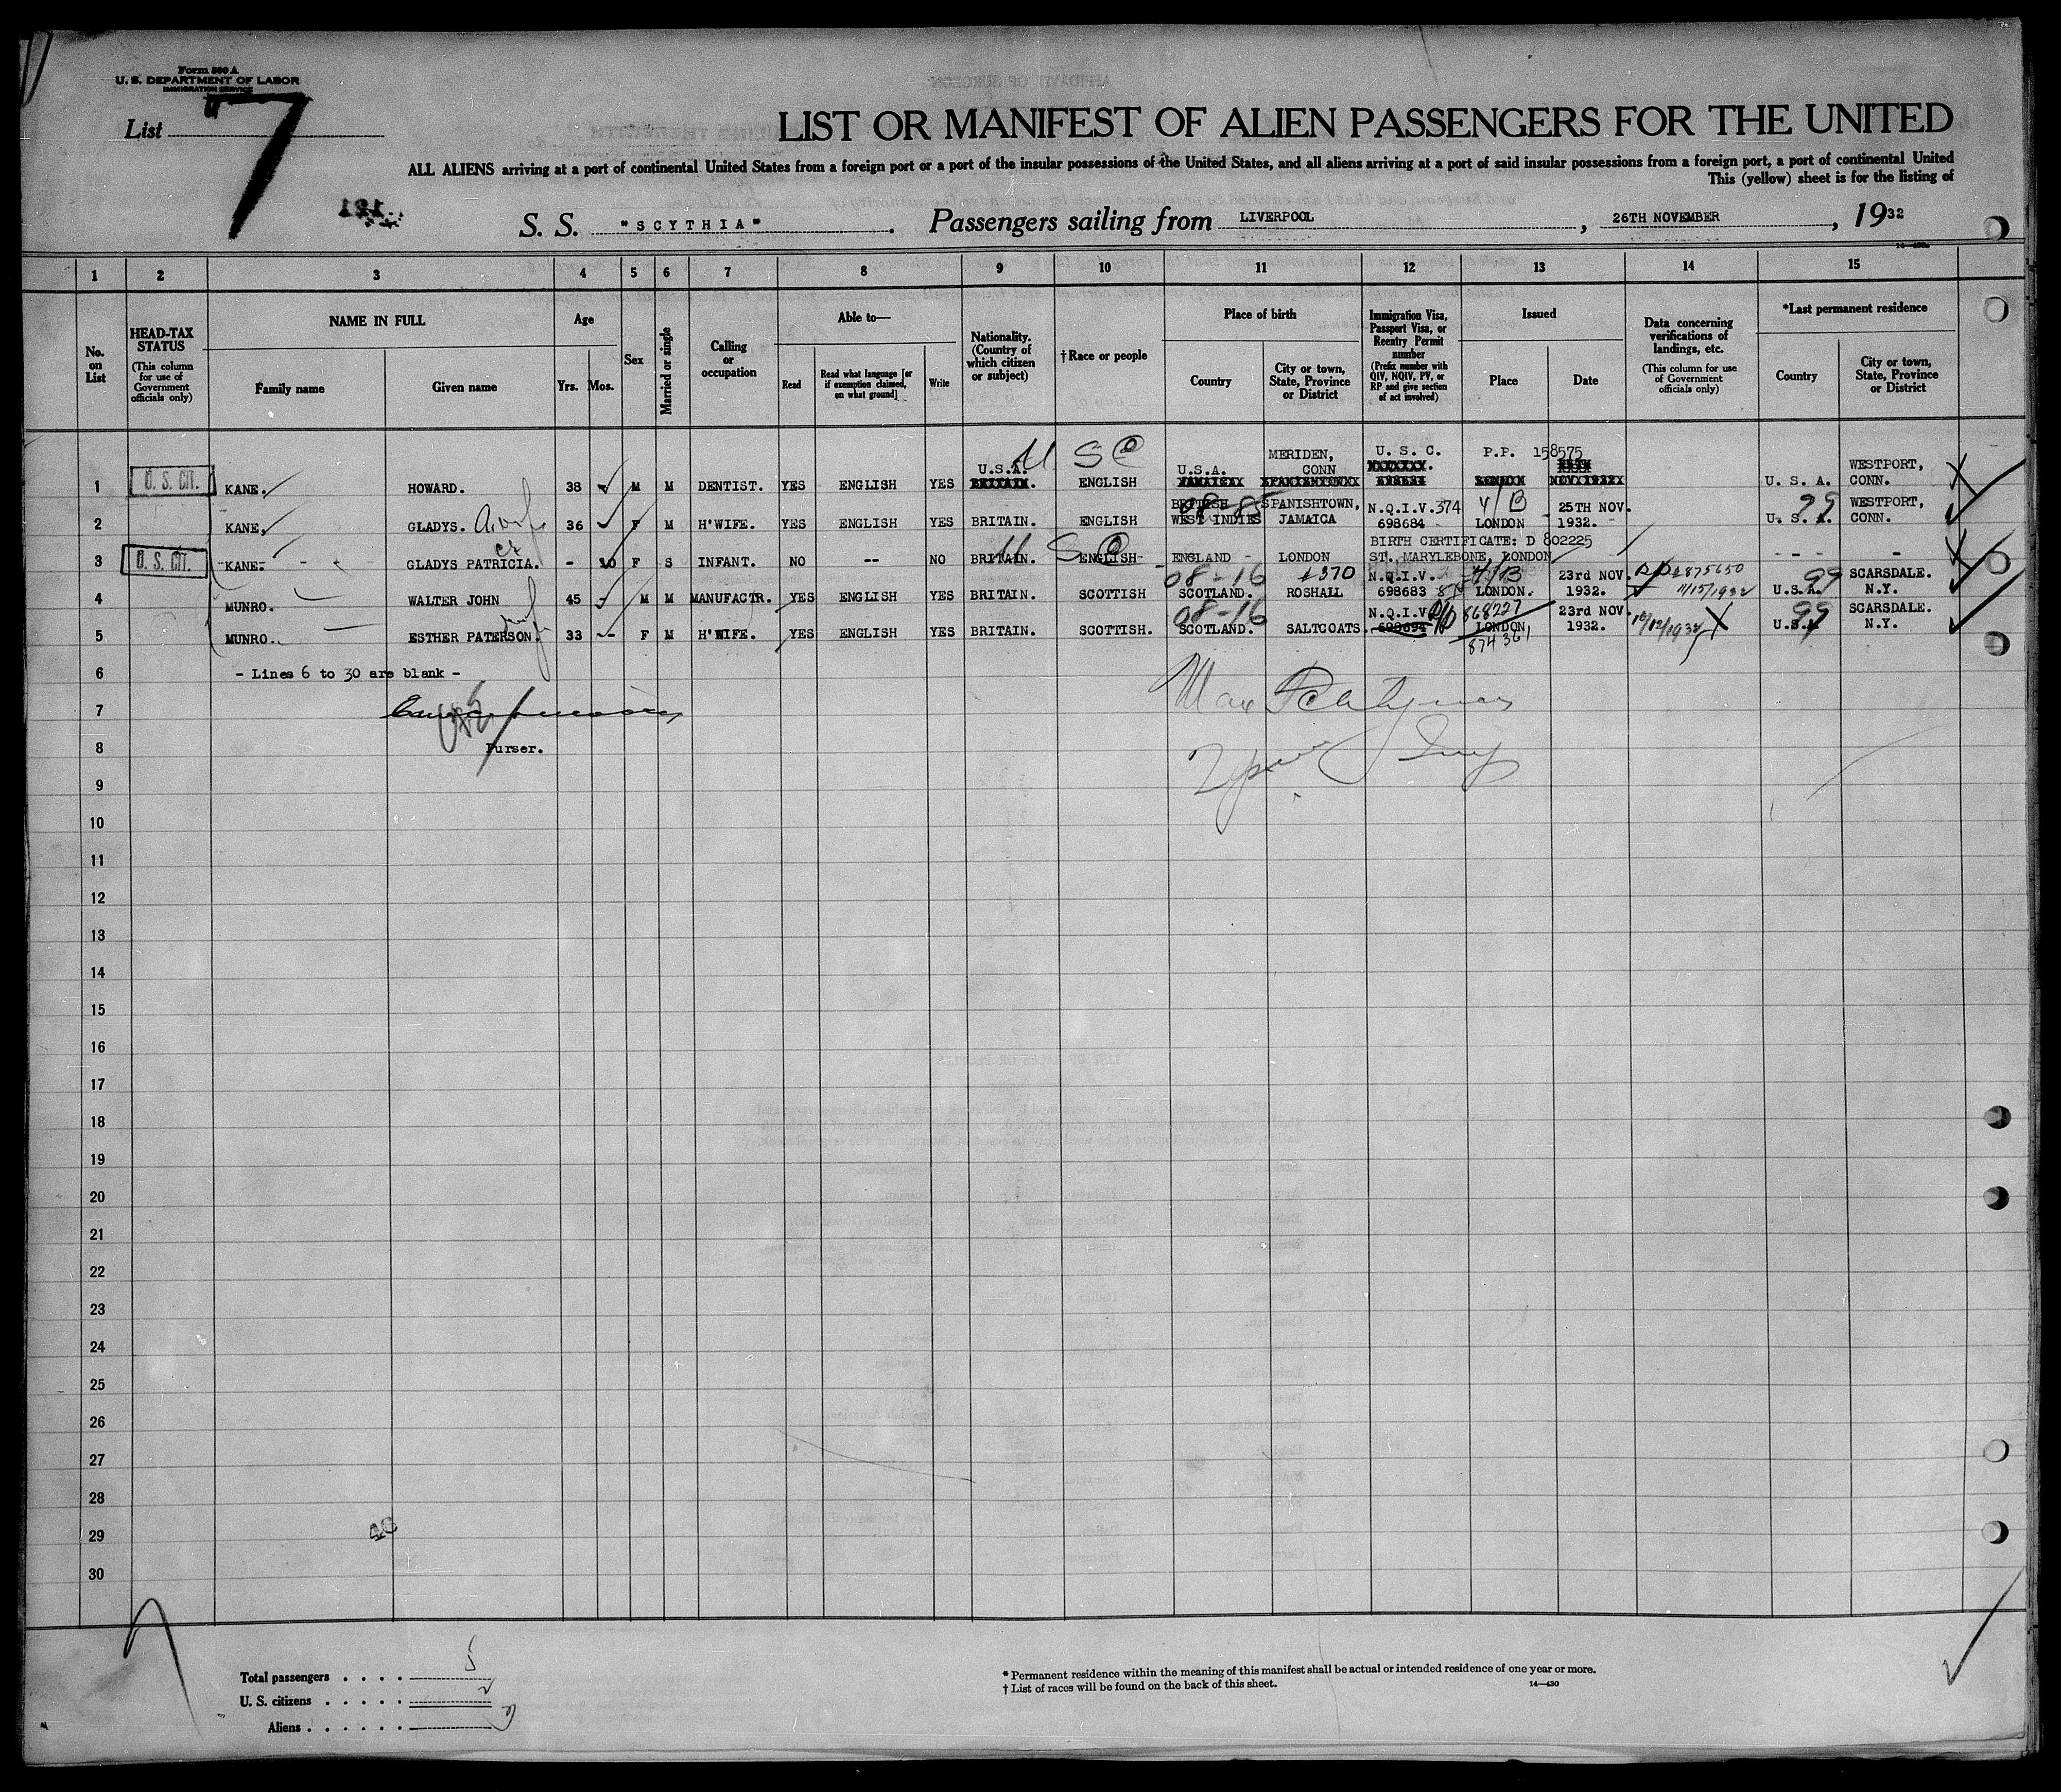 Form 500 A
U. S. DEPARTMENT OF LABOR
IMMIGRATION SERVICE
List 7
LIST OR MANIFEST OF ALIEN PASSENGERS FOR THE UNITED
ALL ALIENS arriving at a port of continental United States from a foreign port or a port of the insular possessions of the United States, and all aliens arriving at a port of said insular possessions from a foreign port, a port of continental United
This (yellow) sheet is for the listing of
S. S. "SCYTHIA" . Passengers sailing from LIVERPOOL , 26TH NOVEMBER , 1932
1 2 3 4 5 6 7 8 9 10 11 12 13 14 15
No. on List
HEAD-TAX STATUS
(This column for use of Government officials only)
NAME IN FULL
Family name
Given name
Age
Yrs. Mos.
Sex
Married or single
Calling or occupation
Able to—
Read
Read what language [or if exemption claimed, on what ground]
Write
Nationality. (Country of which citizen or subject)
†Race or people
Place of birth
Country
City or town, State, Province or District
Immigration Visa, Passport Visa, or Reentry Permit number
(Prefix number with QIV, NQIV, PV, or RP and give section of act involved)
Issued
Place
Date
Data concerning verifications of landings, etc.
(This column for use of Government officials only)
*Last permanent residence
Country
City or town, State, Province or District
U S C
MERIDEN, U. S. C. P.P. 158575
U.S.A. U.S.A. CONN WESTPORT,
1 U. S. CIT. KANE. HOWARD. 38 M M DENTIST. YES ENGLISH YES BRITAIN. ENGLISH 698684 LONDON U. S. A. CONN.
08-85 BRITISH SPANISHTOWN, N.Q.I.V. 374 4/B 25TH NOV. 99 WESTPORT,
2 KANE, GLADYS. 36 F M H'WIFE. YES ENGLISH YES BRITAIN. ENGLISH WEST INDIES JAMAICA 698684 LONDON 1932. U. S. A. CONN.
BIRTH CERTIFICATE: D 802225
U S C
3 U. S. CIT. KANE. GLADYS PATRICIA. - 10 F S INFANT. NO -- NO BRITAIN. ENGLISH ENGLAND LONDON ST. MARYLEBONE, LONDON - - - -
08-16 N.Q.I.V. 4/B 23rd NOV. 99 SCARSDALE.
4 MUNRO. WALTER JOHN 45 M M MANUFACTR. YES ENGLISH YES BRITAIN. SCOTTISH SCOTLAND. ROSHALL 698683 LONDON. 1932. 11/15/1932 U.S.A. N.Y.
08-16 N.Q.I.V. 868227 23rd NOV. 99 SCARSDALE.
5 MUNRO. ESTHER PATERSON. 33 -- F M H'WIFE. YES ENGLISH YES BRITAIN. SCOTTISH. SCOTLAND. SALTCOATS. 698694 LONDON, 1932. 10/12/1932 U.S.A. N.Y.
874361
6 - Lines 6 to 30 are blank -
7
8 Purser.
9
10
11
12
13
14
15
16
17
18
19
20
21
22
23
24
25
26
27
28
29
30
40
Total passengers . . . . 5
U. S. citizens . . . . . 2
Aliens . . . . . . 3
* Permanent residence within the meaning of this manifest shall be actual or intended residence of one year or more.
† List of races will be found on the back of this sheet.
14—430